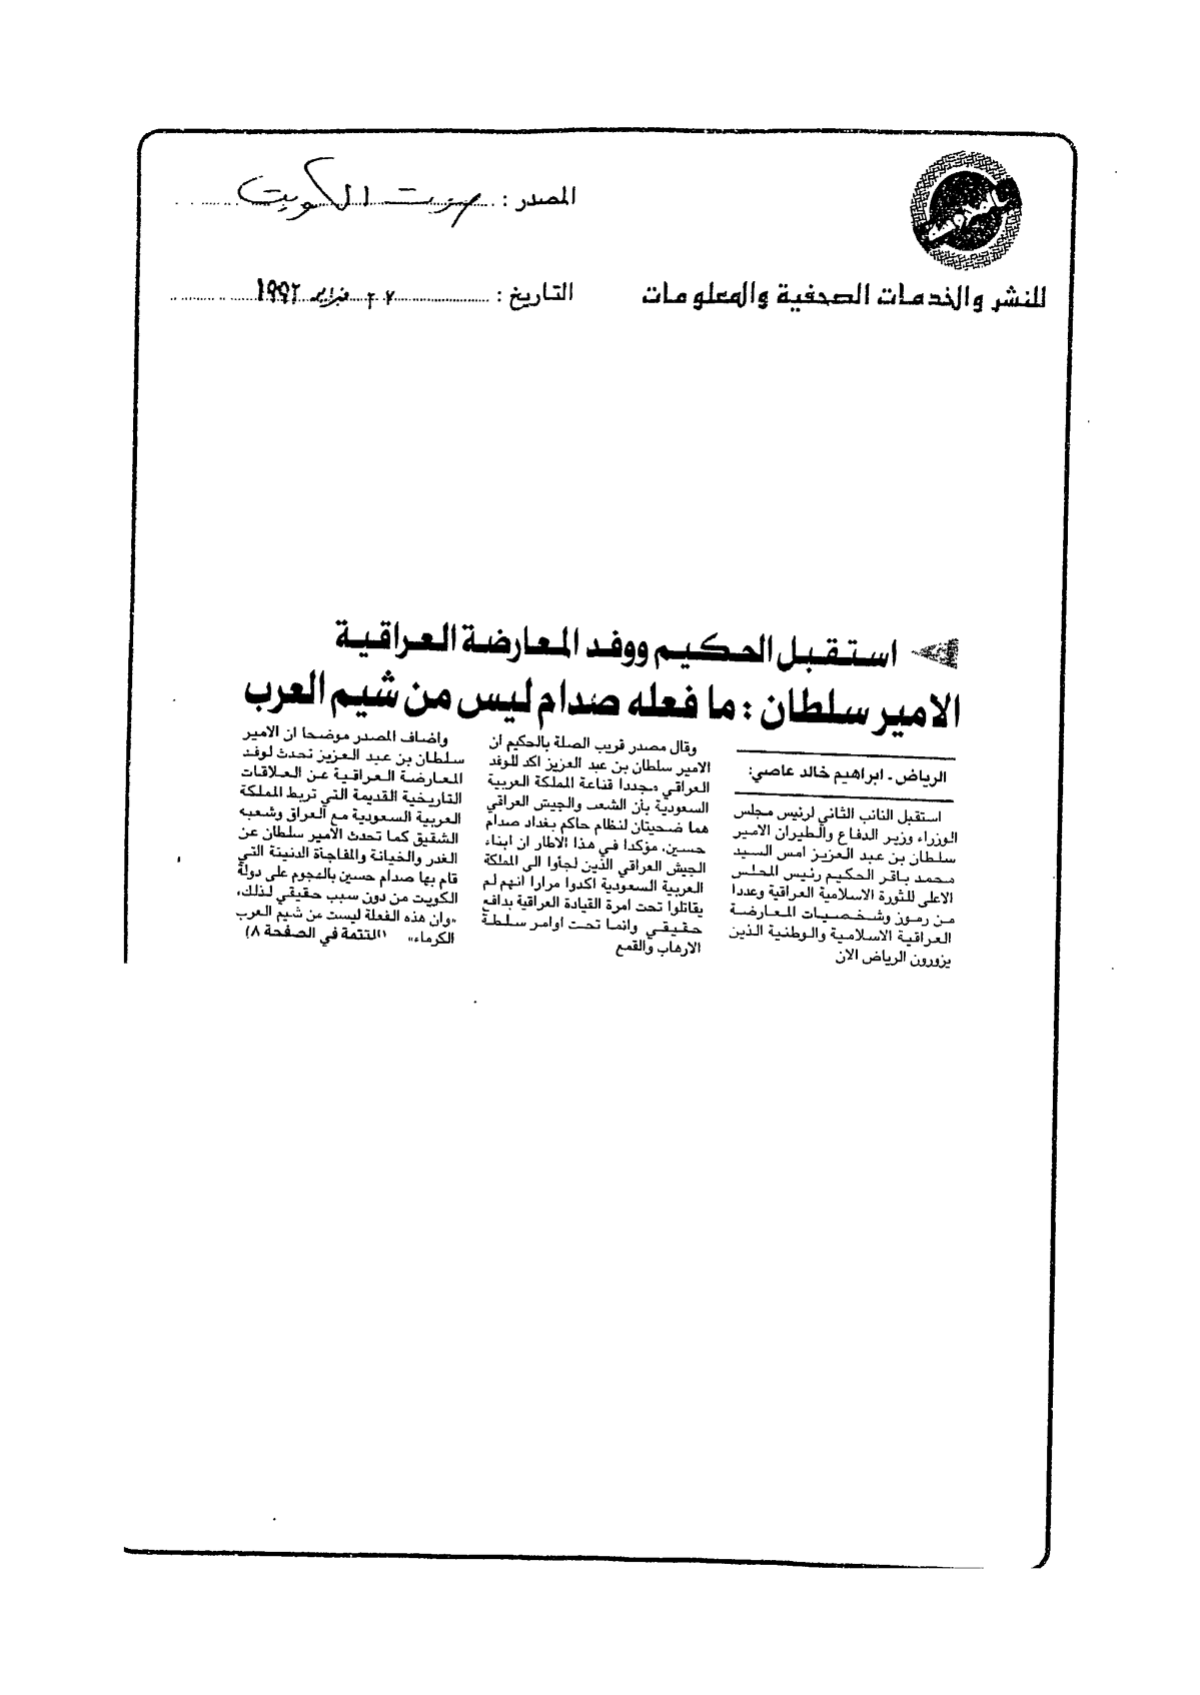 المصدر : صوت الكويت
للنشر والخدمات الصحفية والمعلومات
التاريخ : ٢٧ فبراير ١٩٩٢
استقبل الحكيم ووفد المعارضة العراقية
الامير سلطان : ما فعله صدام ليس من شيم العرب
الرياض ـ ابراهيم خالد عاصي:
استقبل النائب الثاني لرئيس مجلس
الوزراء وزير الدفاع والطيران الامير
سلطان بن عبد العزيز امس السيد
محمد باقر الحكيم رئيس المجلس
الاعلى للثورة الاسلامية العراقية وعددا
من رموز وشخصيات المعارضة
العراقية الاسلامية والوطنية الذين
يزورون الرياض الان
وقال مصدر قريب الصلة بالحكيم ان
الامير سلطان بن عبد العزيز اكد للوفد
العراقي مجددا قناعة المملكة العربية
السعودية بأن الشعب والجيش العراقي
هما ضحيتان لنظام حاكم بغداد صدام
حسين، مؤكدا في هذا الاطار ان ابناء
الجيش العراقي الذين لجأوا الى المملكة
العربية السعودية اكدوا مرارا انهم لم
يقاتلوا تحت امرة القيادة العراقية بدافع
حقيقي وانما تحت اوامر سلطة
الارهاب والقمع
واضاف المصدر موضحا ان الامير
سلطان بن عبد العزيز تحدث لوفد
المعارضة العراقية عن العلاقات
التاريخية القديمة التي تربط المملكة
العربية السعودية مع العراق وشعبه
الشقيق كما تحدث الامير سلطان عن
الغدر والخيانة والمفاجأة الدنيئة التي
قام بها صدام حسين بالهجوم على دولة
الكويت من دون سبب حقيقي لذلك،
«وان هذه الفعلة ليست من شيم العرب
الكرماء» (التتمة في الصفحة ٨)